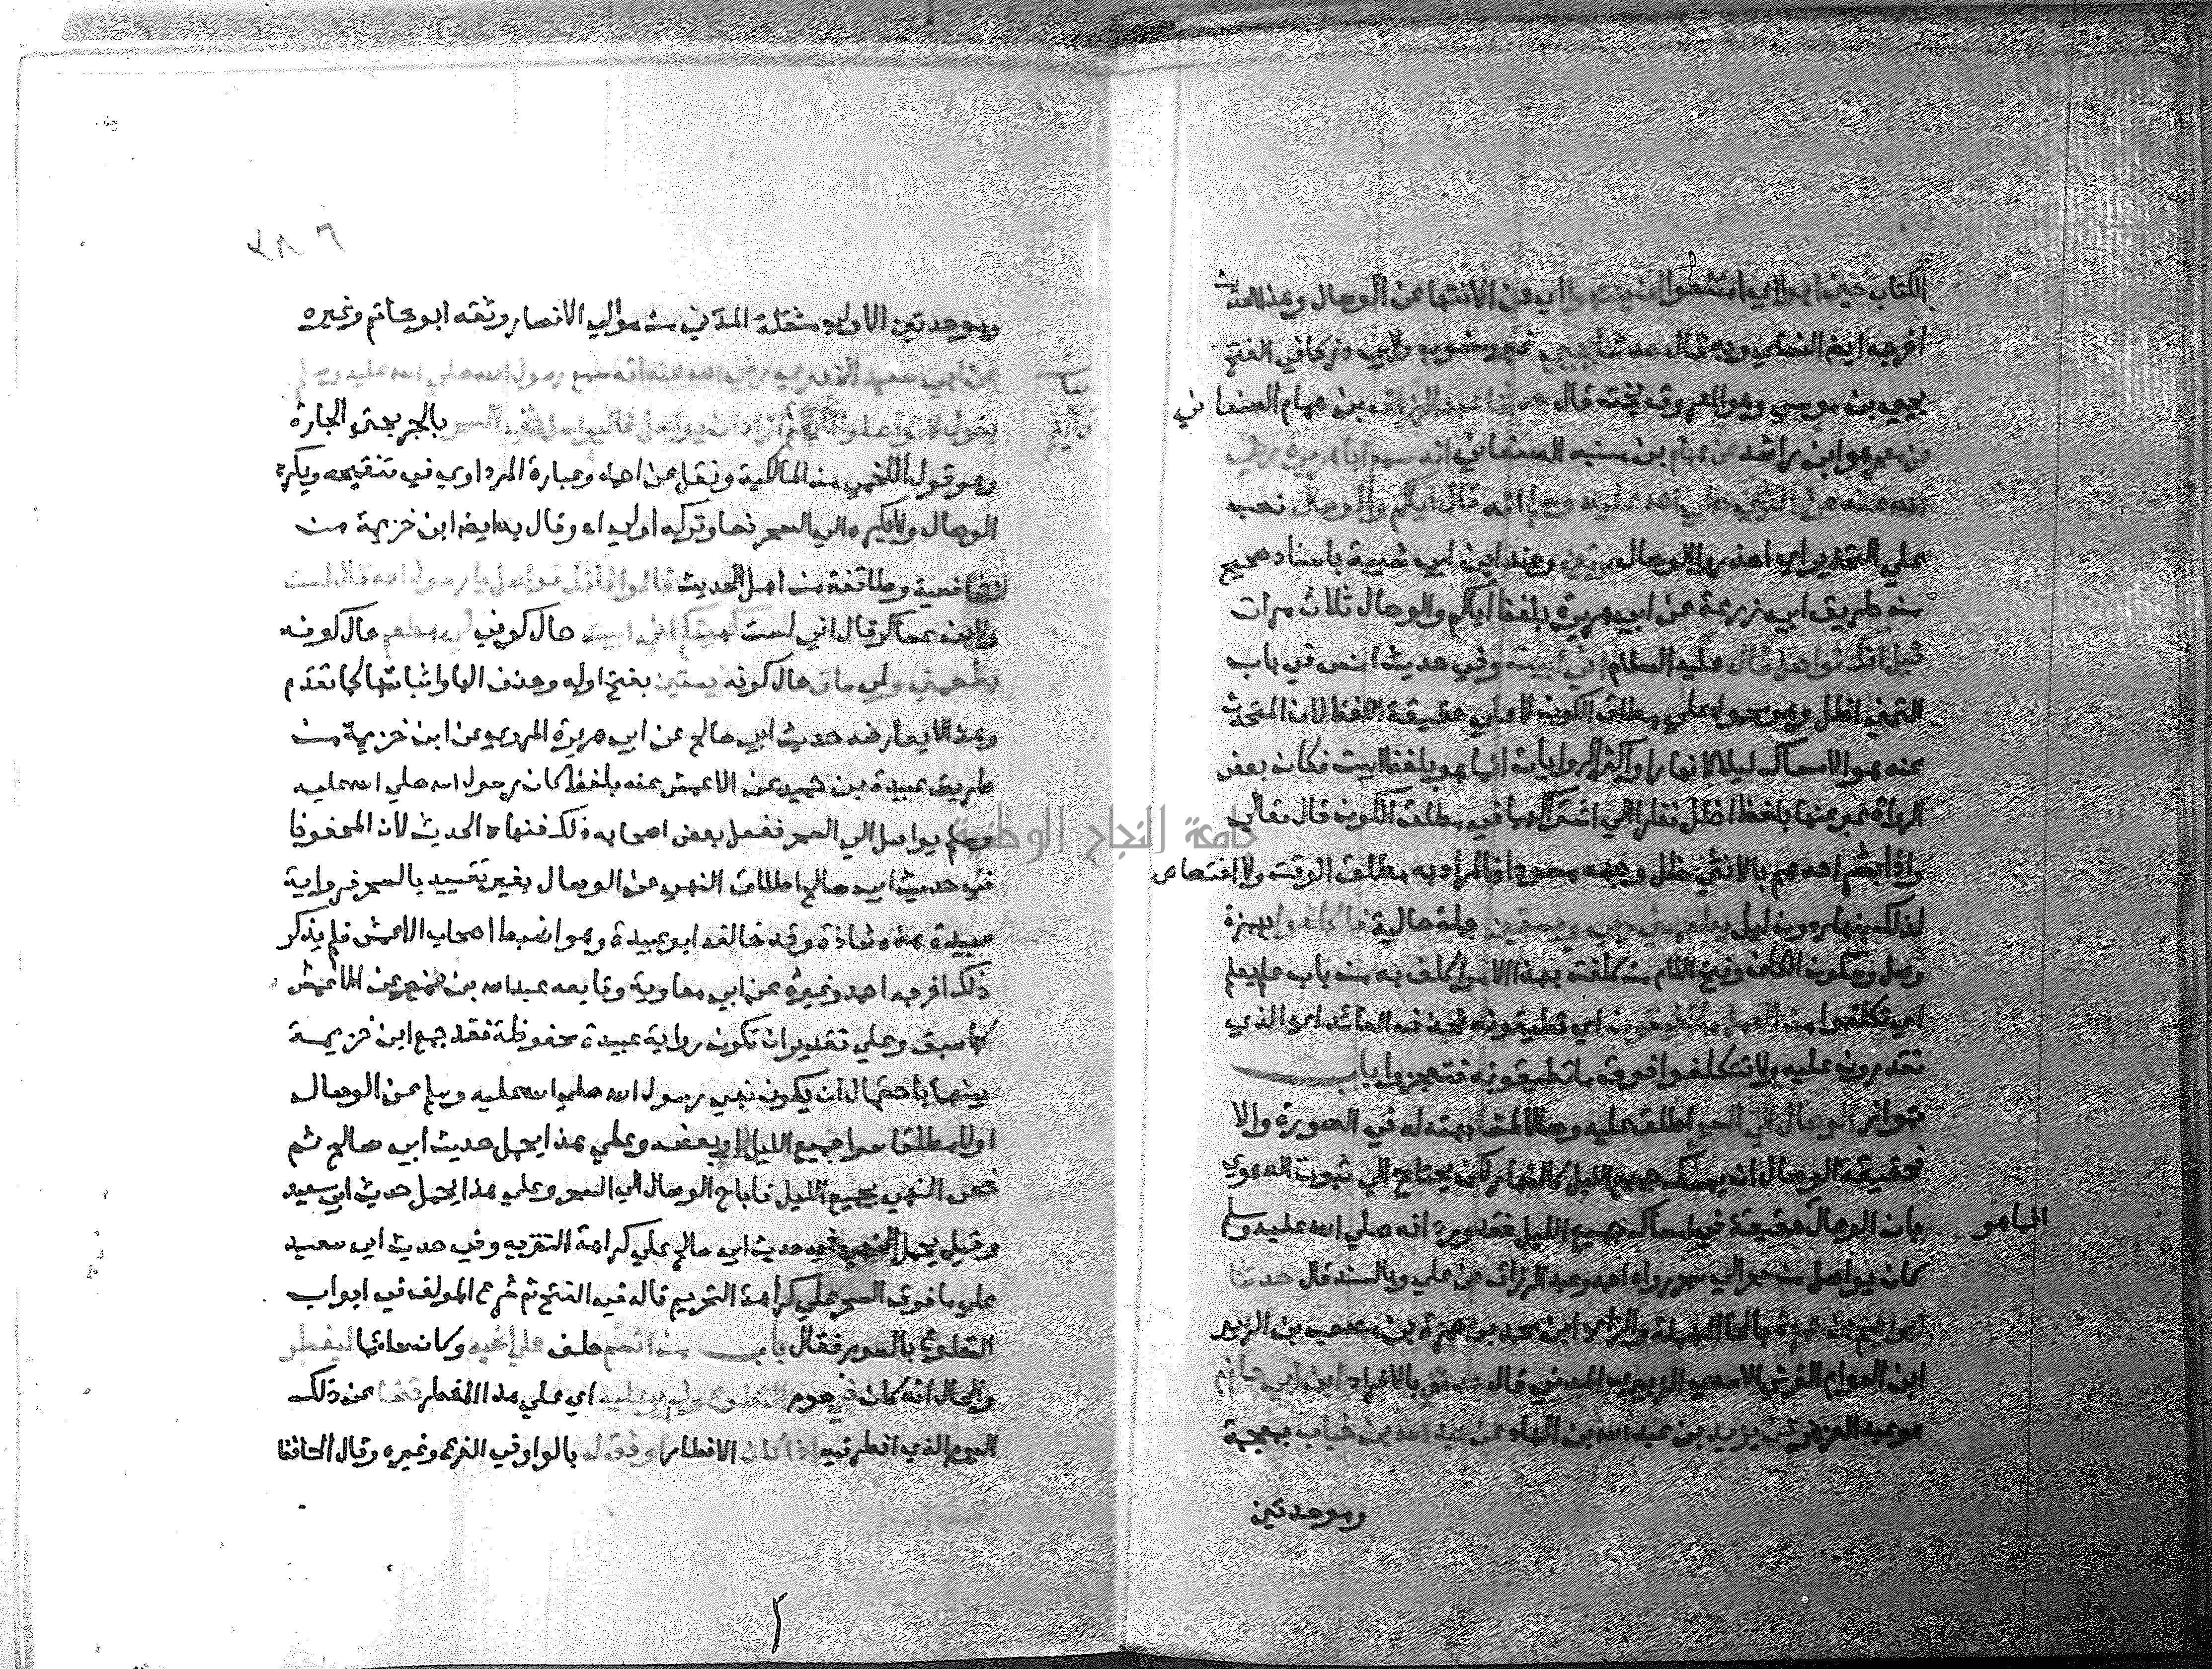 الكتاب حين ابوا اي امتنعوا ان ينتهوا اي عن الانتها عن الوصال وهذا الحديث
اخرجه ايضا النساي وبه قال حدثنا يحيي غير منسوب ولابي ذر كما في الفتح
يحيي بن موسي وهو المعروف بخت قال حدثنا عبد الرزاق بن همام الصنعاني
عن معمر هو ابن راشد عن همام بن منبه الصنعاني انه سمع ابا هريرة رضي
الله عنه عن النبي صلي الله عليه وسلم انه قال اياكم والوصال نصب
علي التحذير اي احذروا الوصال مرتين وعند ابن ابي شيبة باسناد صحيح
من طريق ابي زرعة عن ابي هريرة بلفظ اياكم والوصال ثلاث مرات
قيل انك تواصل قال عليه السلام اني ابيت وفي حديث انس في باب
التمني اظل وهو محمول علي مطلق الكون لا علي حقيقة اللفظ لان المتحدث
عنه هو الامساك ليلا لا نهارا واكثر الروايات انما هو بلفظ ابيت فكان بعض
الرواة عبر عنها بلفظ اظل نظرا الي اشتراكهما في مطلق الكون قال تعالي
واذا بشر احدهم بالانثي ظل وجهه مسودا فالمراد به مطلق الوقت ولا اختصاص
لذلك بنهار دون ليل يطعمني ربي ويسقين جملة حالية فاكلفوا بهمزة
وصل وسكون الكاف وفتح اللام من كلفت بهذا الامر اكلف به من باب علم يعلم
اي تكلفوا من العمل ما تطيقون اي تطيقونه فحذف العائد اي الذي
تقدرون عليه ولا تتكلفوا فوق ما تطيقونه فتعجزوا باب
جواز الوصال الي السحر اطلق عليه وصالا لمشابهته له في الصورة والا
فحقيقة الوصال ان يمسك جميع الليل كالنهار لكن يحتاج الي ثبوت الدعوي
بان الوصال حقيقة في امساك جميع الليل فقد ورد انه صلي الله عليه وسلم
انما هو
كان يواصل من سحر الي سحر رواه احمد وعبد الرزاق عن علي وبالسند قال حدثنا
ابراهيم بن حمزة بالحا المهملة والزاي ابن محمد بن حمزة بن مصعب بن الزبير
ابن العوام القرشي الاسدي الزبيري المدني قال حدثني بالافراد ابن ابي حازم
هو عبد العزيز عن يزيد بن عبد الله بن الهاد عن عبد الله بن خباب بمعجمة
وموحدتين
وموحدتين الاولي مثقلة المدني من موالي الانصار وثقه ابو حاتم وغيره
عن ابي سعيد الخدري رضي الله عنه انه سمع رسول الله صلي الله عليه وسلم
يقول لا تواصلوا فايكم اراد ان يواصل فليواصل حتي السحر بالجر بحتي الجارة
فايكم
وهو قول اللخمي من المالكية ونقل عن احمد وعبارة المرداوي في تنقيحه ويكره
الوصال ولا يكره الي السحر نصا وتركه اولي اه وقال به ايضا ابن خزيمة من
الشافعية وطائفة من اهل الحديث قالوا فانك تواصل يا رسول الله قال لست
ولابن عساكر قال اني لست كهيئتكم اني ابيت حال كوني لي مطعم حال كونه
يطعمني ولي ساق حال كونه يسقين بفتح اوله وحذف اليا واثباتها كما تقدم
وهذا لا يعارضه حديث ابي صالح عن ابي هريرة المروي عن ابن خزيمة من
طريق عبيدة بن حميد عن الاعمش عنه بلفظ كان رسول الله صلي الله عليه
وسلم يواصل الي السحر ففعل بعض اصحابه ذلك فنهاه الحديث لان المحفوظ
في حديث ابي صالح اطلاق النهي عن الوصال بغير تقييد بالسحر فرواية
عبيدة هذه شاذة وقد خالفه ابو عبيدة وهو اضبط اصحاب الاعمش فلم يذكر
ذلك اخرجه احمد وغيره عن ابي معاوية وتابعه عبد الله بن نمير عن الاعمش
كما سبق وعلي تقدير ان تكون رواية عبيدة محفوظة فقد جمع ابن خزيمة
بينهما باحتمال ان يكون نهي رسول الله صلي الله عليه وسلم عن الوصال
اولا مطلقا سوا جميع الليل او بعضه وعلي هذا يحمل حديث ابي صالح ثم
خص النهي بجميع الليل فاباح الوصال الي السحر وعلي هذا يحمل حديث ابي سعيد
وقيل يحمل النهي في حديث ابي صالح علي كراهة التنزيه وفي حديث ابي سعيد
علي ما فوق السحر علي كراهة التحريم قاله في الفتح ثم شرع المولف في ابواب
التطوع بالصوم فقال باب من اقسم حلف علي اخيه وكان صائما ليفطر
والحال انه كان في صوم التطوع ولم ير عليه اي علي هذا المفطر قضا عن ذلك
اليوم الذي افطر فيه اذا كان الافطار اوفق له بالواو في الفرع وغيره وقال الحافظ
جامعة النجاح الوطنية